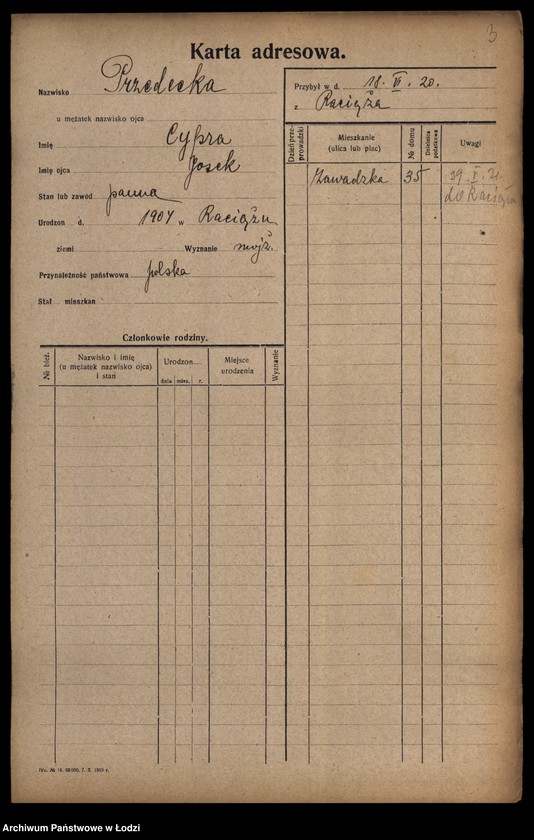 3
Karta adresowa.
Nazwisko Przedecka
u mężatek nazwisko ojca
Imię Cypra
Imię ojca Josek
Stan lub zawód panna
Urodzon d. 1904 w Raciążu
ziemi Wyznanie mojż.
Przynależność państwowa polska
Stał mieszkan
Przybył w d. 18. VI. 20.
z Raciąża
Dzień przeprowadzki
Mieszkanie (ulica lub plac)
№ domu
Dzielnica podatkowa
Uwagi
Zawadzka 35 29. V. 21.
do Raciąża
Członkowie rodziny.
№ bież.
Nazwisko i imię (u mężatek nazwisko ojca) i stan
Urodzon
dnia mies. r.
Miejsce urodzenia
Wyznanie
7. X. 1919 r.
Archiwum Państwowe w Łodzi